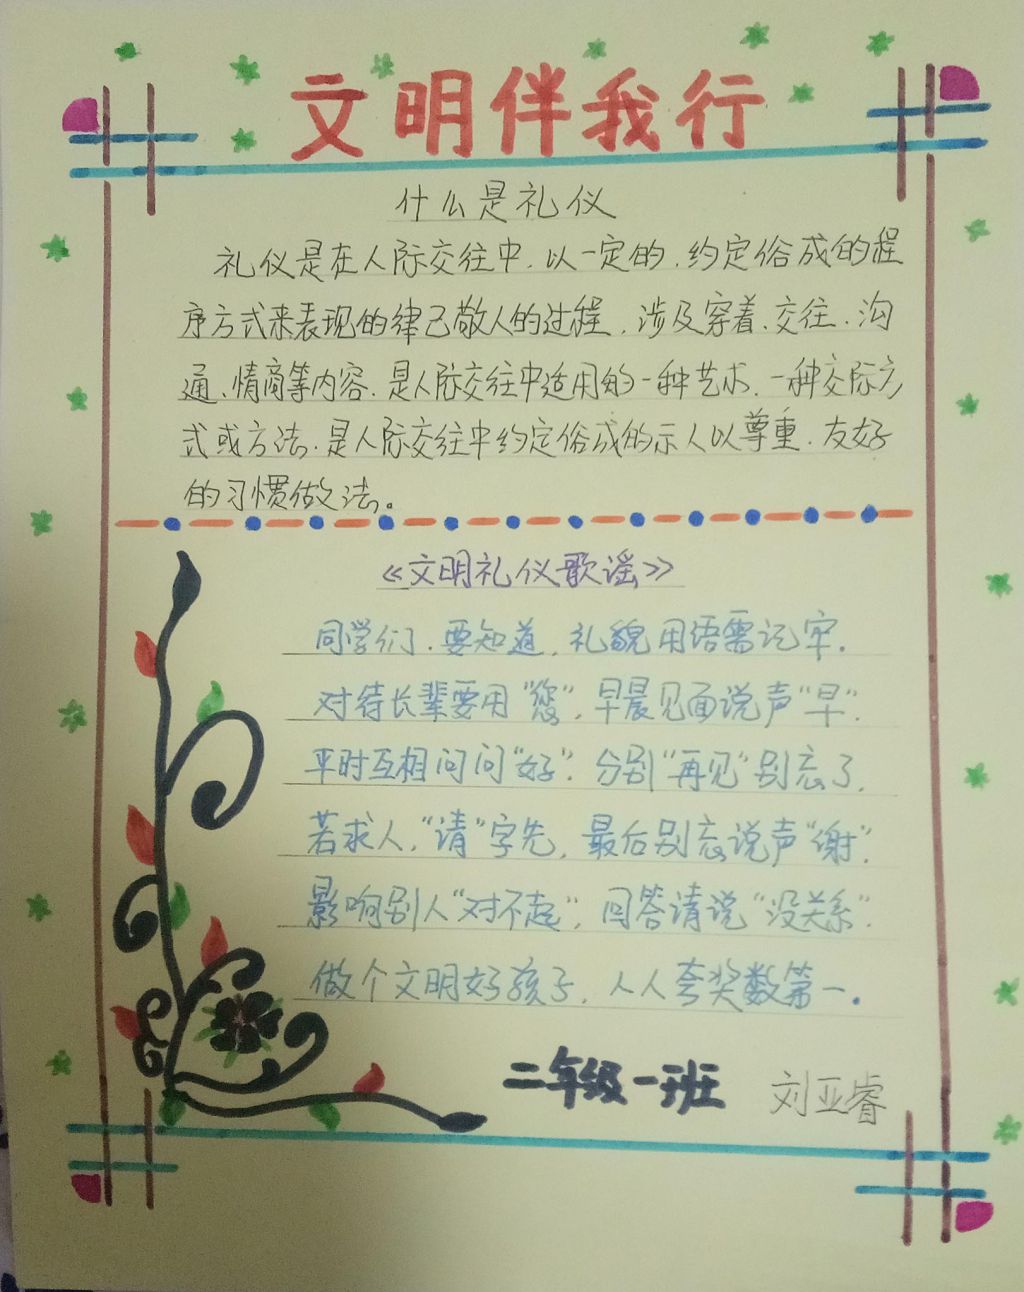 文明伴我行
什么是礼仪
礼仪是在人际交往中,以一定的,约定俗成的程
序方式来表现的律己敬人的过程,涉及穿着、交往、沟
通、情商等内容,是人际交往中适用的一种艺术,一种交际方
式或方法,是人际交往中约定俗成的示人以尊重,友好
的习惯做法。
《文明礼仪歌谣》
同学们,要知道,礼貌用语需记牢.
对待长辈要用“您”,早晨见面说声“早”.
平时互相问问“好”.分别“再见”别忘了.
若求人,“请”字先,最后别忘说声“谢”.
影响别人“对不起”,回答请说“没关系”.
做个文明好孩子,人人夸奖数第一.
二年级一班 刘亚睿